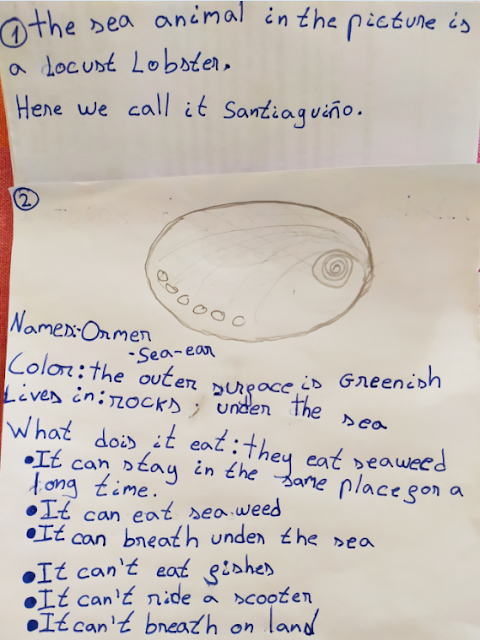 ① the sea animal in the picture is
a locust Lobster.
Here we call it Santiaguiño.
②
Names:-Ormer
-Sea-ear
Color: the outer surgace is Greenish
Lives in: rocks, under the sea
What dois it eat: they eat seaweed
•It can stay in the same place gor a
long time.
•It can eat sea weed
•It can breath under the sea
•It can't eat gishes
•It can't ride a scooter
•It can't breath on land